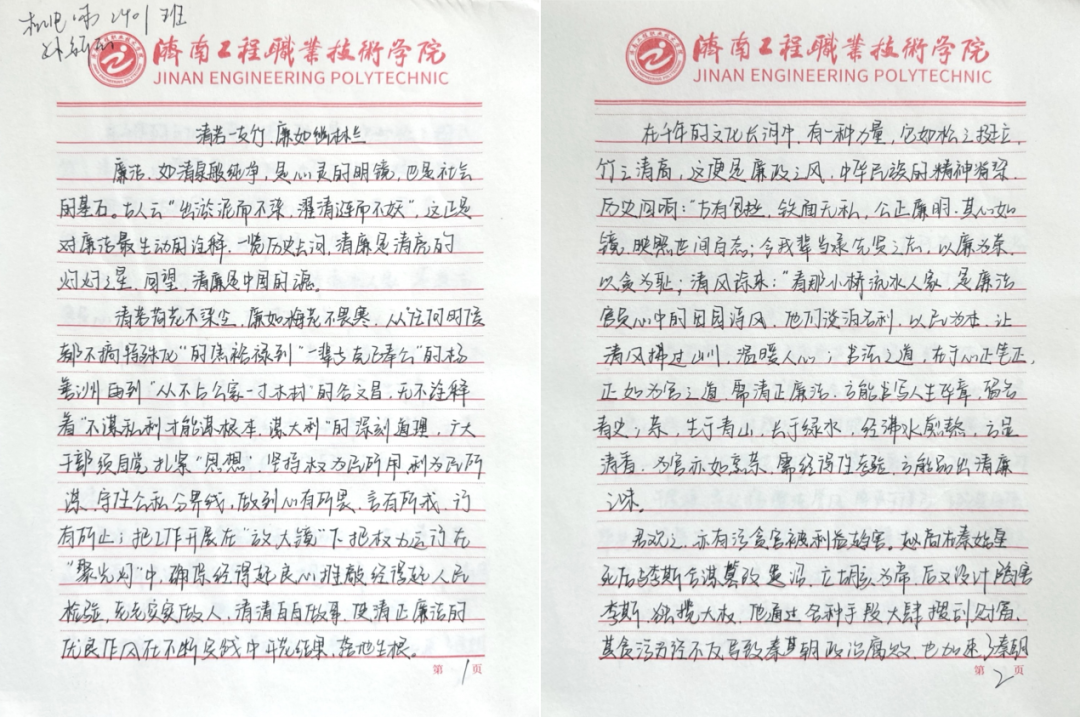 机电 2401班
濟南工程職業技術學院
JINAN ENGINEERING POLYTECHNIC
清若一支竹,廉如幽林兰
廉洁,如清泉般纯净,是心灵的明镜,也是社会
的基石。古人云"出淤泥而不染,濯清涟而不妖",这正是
对廉洁最生动的诠释,一览历史长河,清廉是清亮的
灼灼之星,回望,清廉是中国的源。
清若荷花不染尘,廉如梅花不畏寒,从"任何时候
都不搞特殊化"的焦裕禄到"一辈子克己奉公"的杨
善洲再到"从不占公家一寸木材"的谷文昌,无不诠释
着"不谋私利才能谋根本,谋大利"的深刻道理,广大
干部须自觉扎紧"思想"坚持权为民所用利为民所
谋,守住公私分界线,做到心有所畏,言有所戒,行
有所止;把工作开展在"放大镜"下把权力运行在
"聚光灯"中,确保经得起良心推敲经得起人民
检验,老老实实做人,清清白白做事,使清正廉洁的
优良作风在不断实践中开花结果,落地生根。
第1页
濟南工程職業技術學院
JINAN ENGINEERING POLYTECHNIC
在千年的文化长河中,有一种力量,它如松之挺立,
竹之清高,这便是廉政之风,中华民族的精神脊梁,
历史回响:"古有包拯,铁面无私,公正廉明,其心如
镜,映照世间百态;今我辈当承先贤之志,以廉为荣,
以贪为耻;清风徐来:"看那小桥流水人家,是廉洁
官员心中的田园诗风,他们淡泊名利,以民为本,让
清风拂过山川,温暖人心;书法之道,在于心正笔正,
正如为官之道,需清正廉洁,方能书写人生华章,留名
青史;茶,生于青山,长于绿水,经沸水煎熬,方显
清香,为官亦如烹茶,需经得住考验,方能品出清廉
之味。
君观之,亦有污贪官被利益驱害。赵高在秦始皇
死后与李斯合谋篡改遗诏,立胡亥为帝,后又设计陷害
李斯,独揽大权,他通过各种手段大肆搜刮财富,
其贪污行径不仅导致秦朝政治腐败,也加速了秦朝
第2页